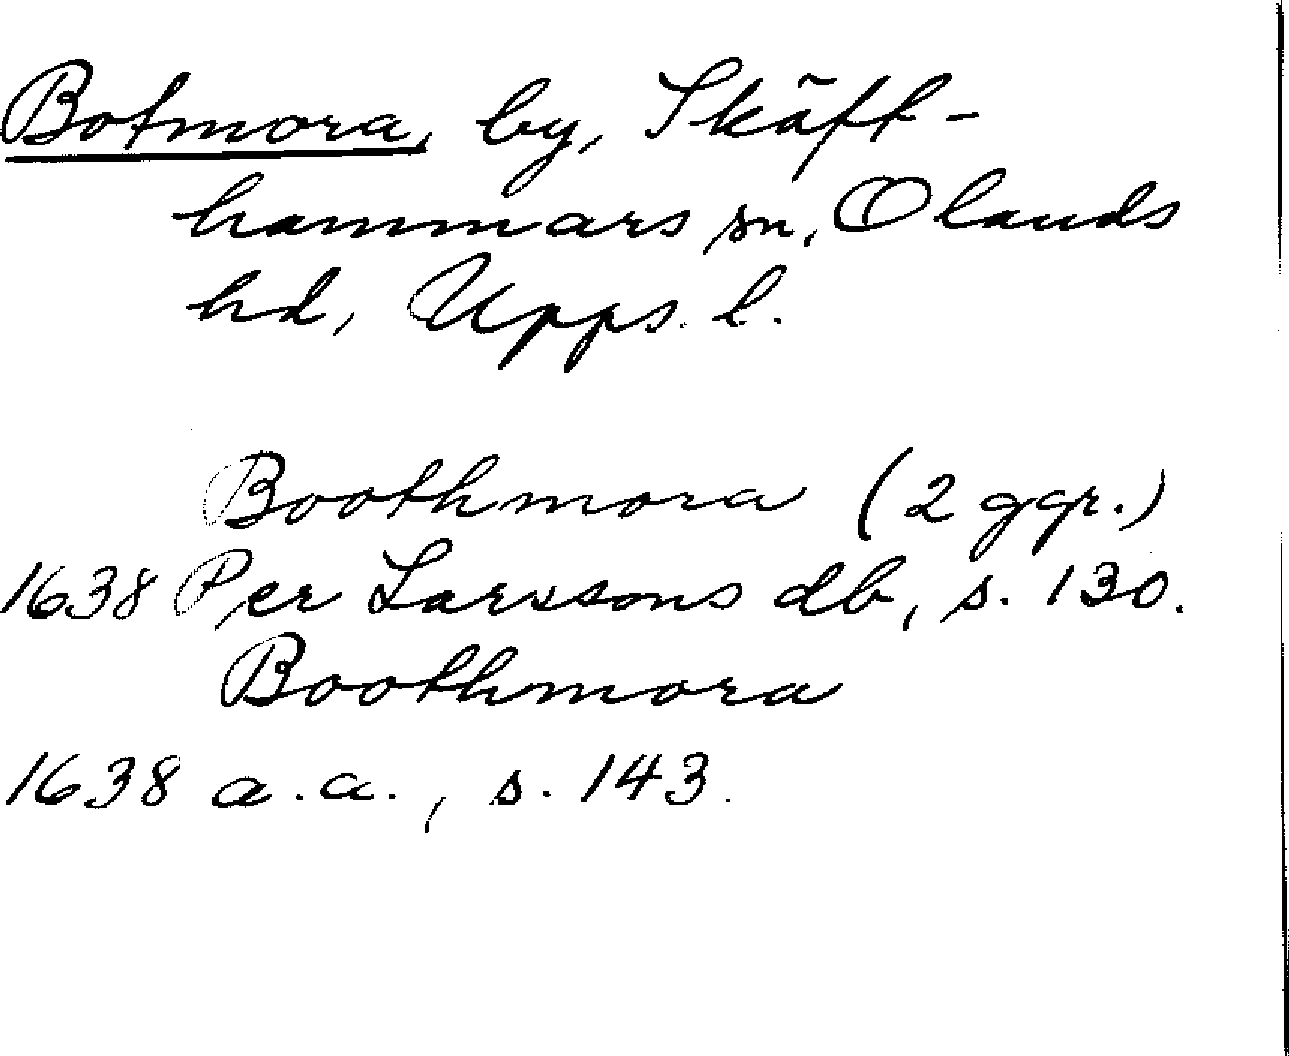 Botmora, by, Skäft-
hammars sn, Olands
hd, Upps. l.
Boothmora (2 ggr.)
1638 Per Larssons db, s. 130.
Boothmora
1638 a.a., s. 143.